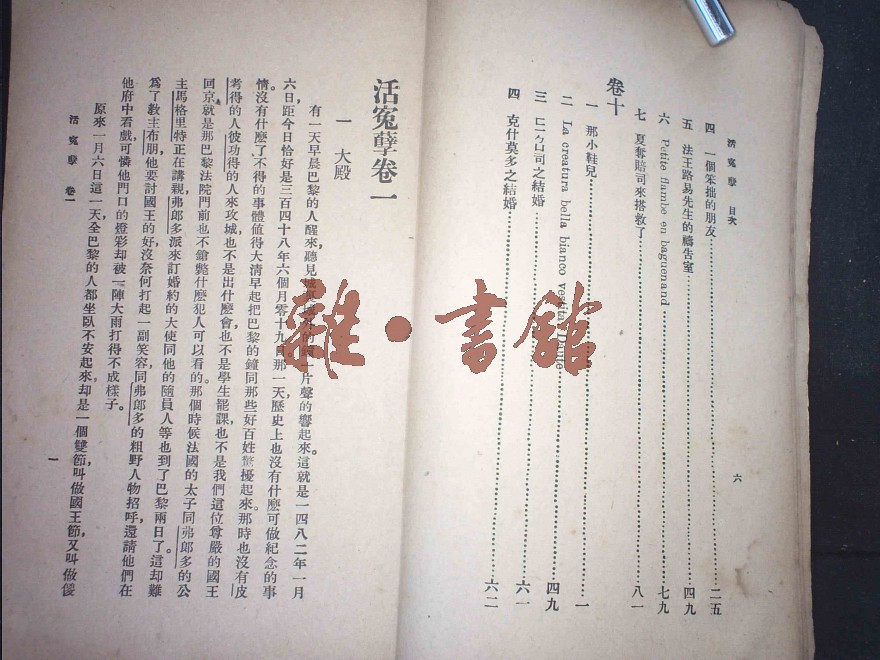 活寃孽 目次
四 一個笨拙的朋友 二五
五 法王路易先生的禱告室 四九
六 Petite flambe en baguenand 七九
七 夏奪賠司來搭救了 八一
卷十
一 那小鞋兒 一
二 La creatura bella bianco vestita 四九
三 之結婚 六一
四 克什莫多之結婚 六二
六
活寃孽卷一
一 大殿
有一天早晨巴黎的人醒來，聽見 的 一片聲的響起來。這就是一四八二年一月
六日，距今日恰好是三百四十八年六個月零十九 那一天，歷史上也沒有什麼可做紀念的事
情。沒有什麼了不得的事體值得大清早起把巴黎的鐘同那些好百姓驚擾起來。那時也沒有皮
考得的人彼功得的人來攻城，也不是出什麼會，也不是學生罷課，也不是我們這位尊嚴的國王
回京，就是那巴黎法院門前也不鎗斃什麼犯人可以看的。那個時候法國的太子同弗郎多的公
主馬格里特正在講親，弗郎多派來訂婚約的大使同他的隨員人等也到了巴黎兩日了。這却難
爲了教主布朋，他要討國王的好，沒奈何打起一副笑容，同弗郎多的粗野人物招呼，還請他們在
他府中看戲，可憐他門口的燈彩却被一陣大雨打得不成樣子。
原來一月六日這一天，全巴黎的人都坐臥不安起來，却是一個雙節，叫做國王節，又叫做儍
活寃孽 卷一
一
雜·書館